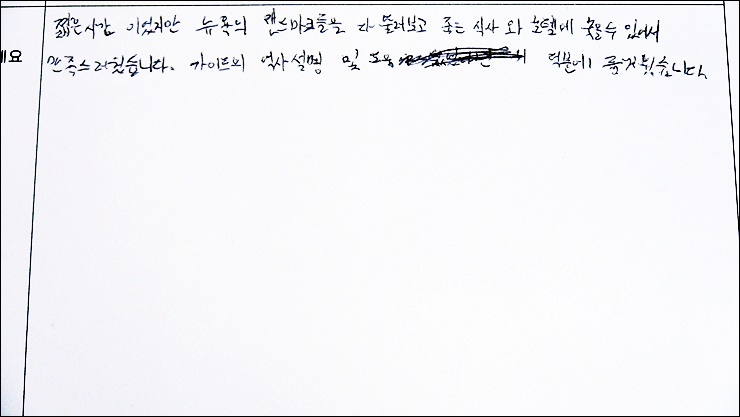 짧은시간 이었지만 뉴욕의 랜드마크들을 다 둘러보고 좋은 식사 와 호텔에 묵을수 있어서
세요 만족스러웠습니다. 가이드의 역사설명 및 도움 덕분에 즐거웠습니다